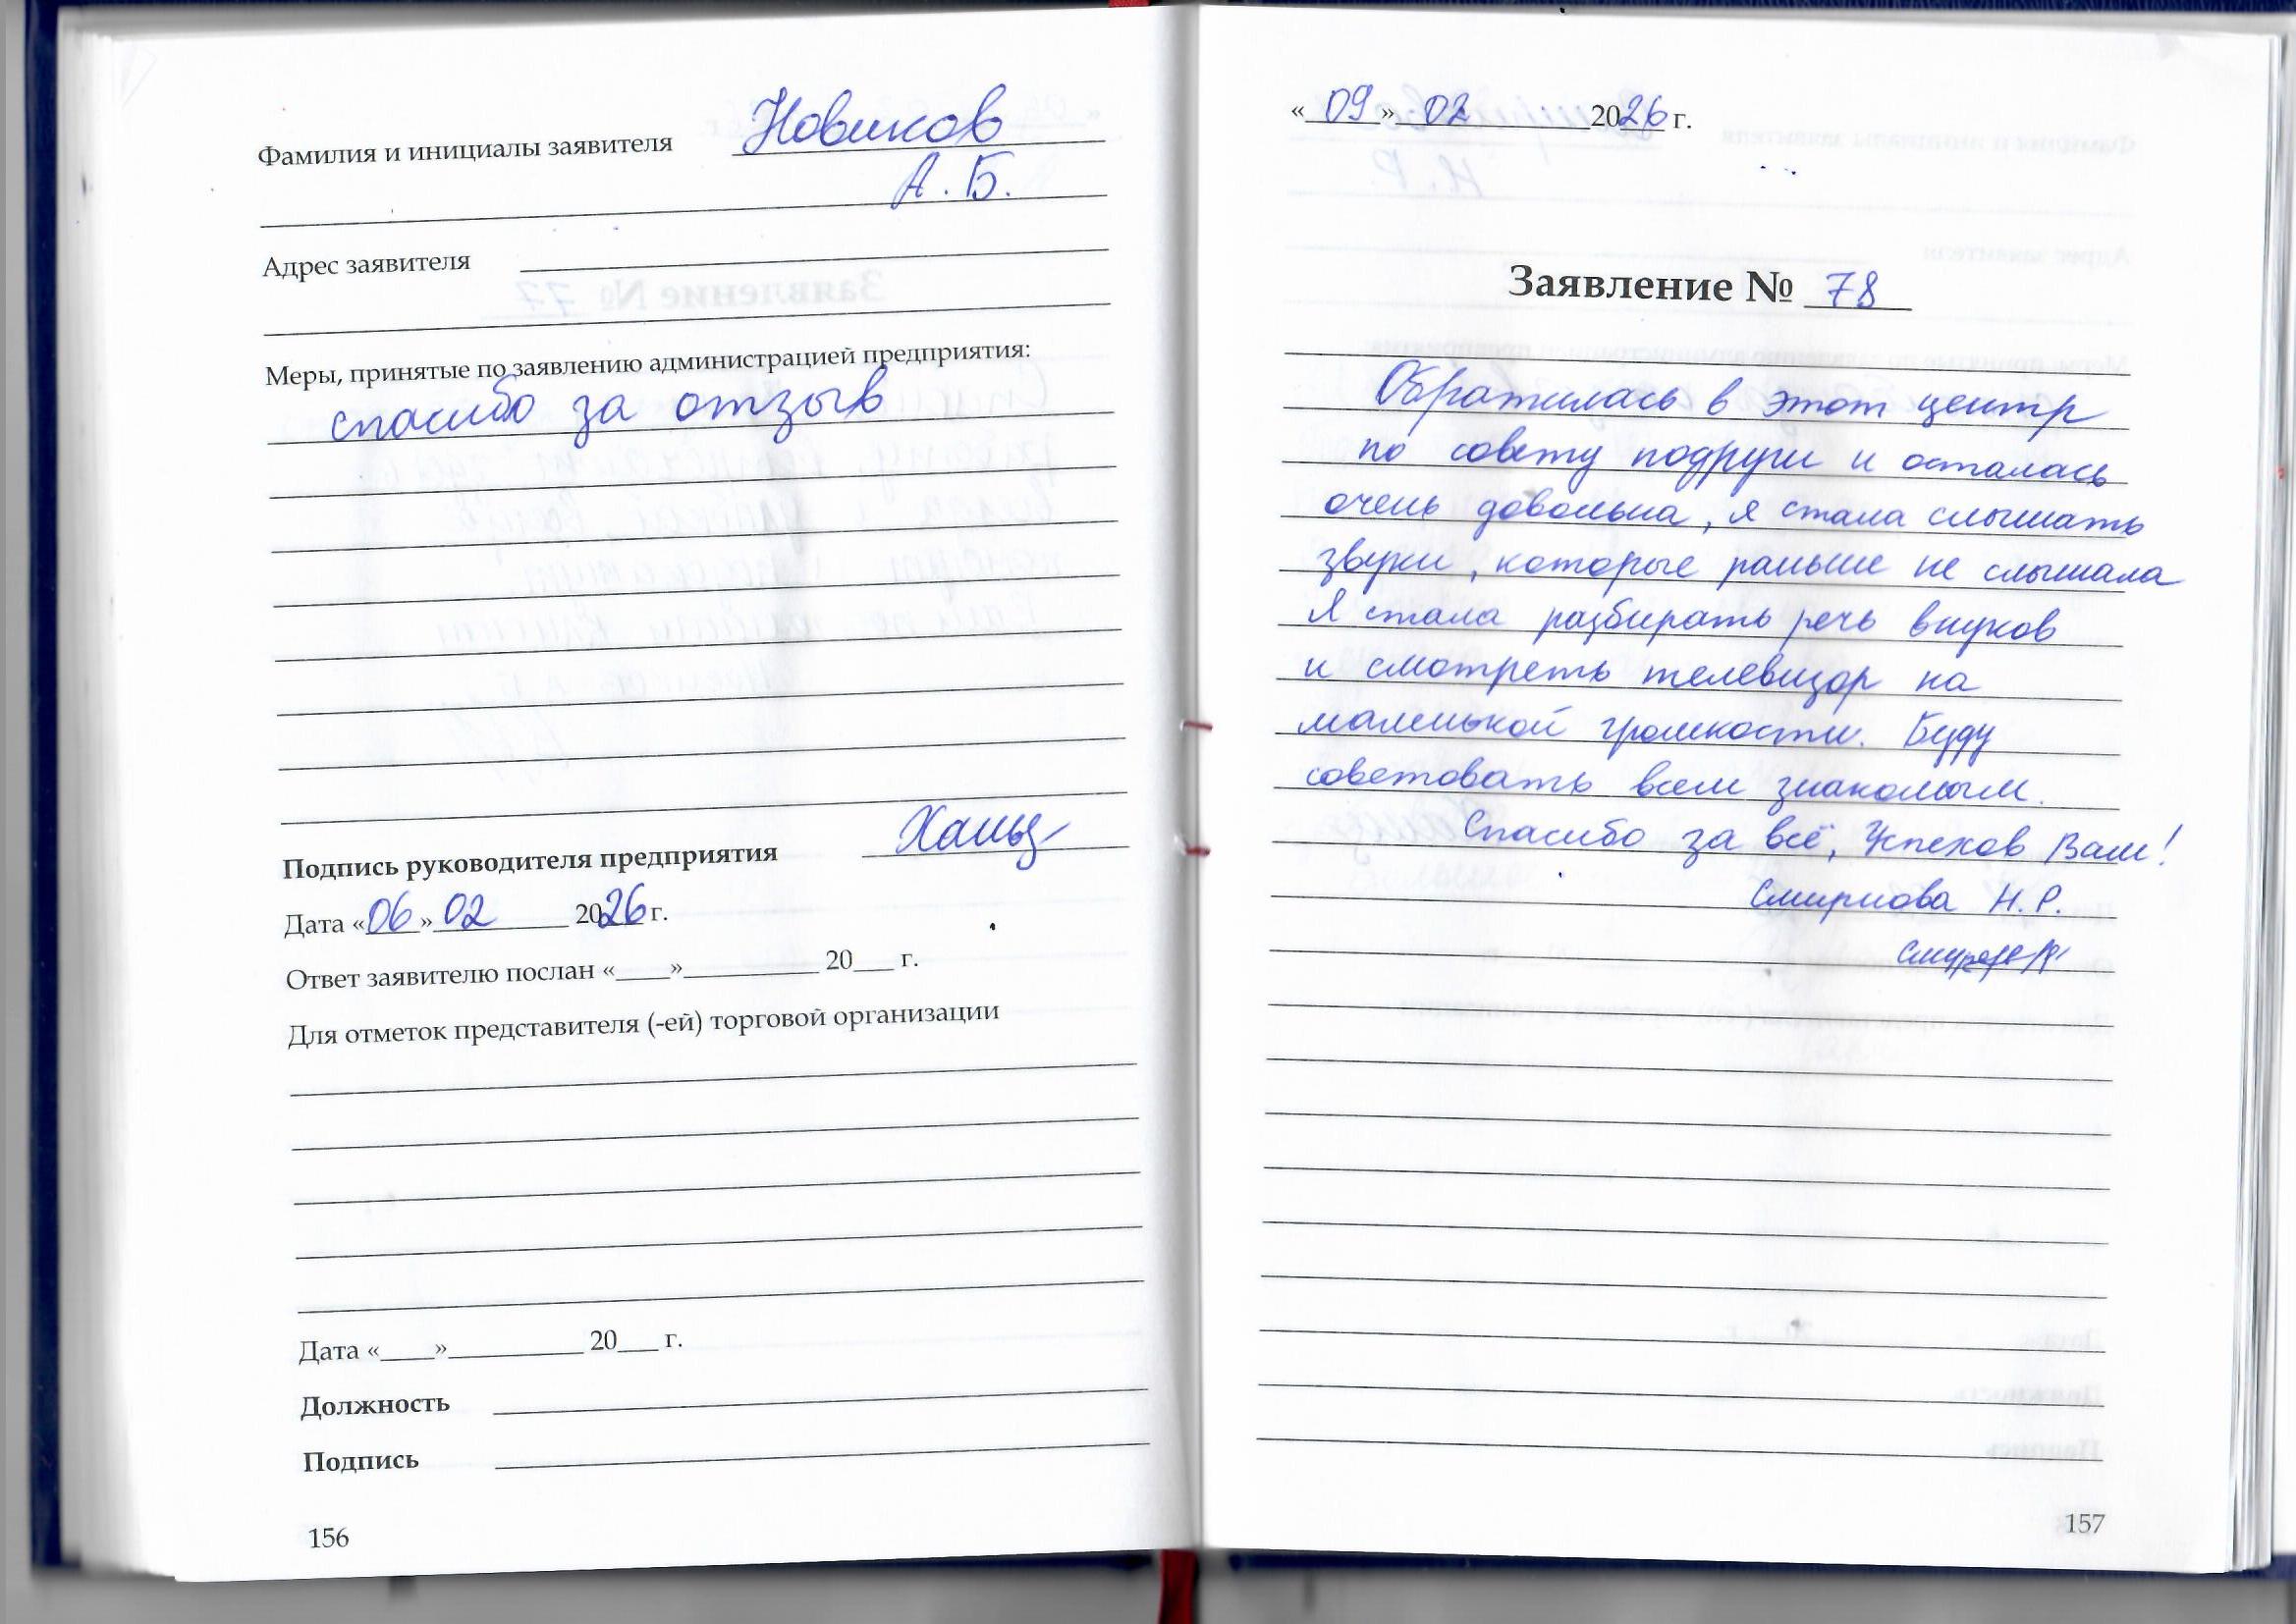 Фамилия и инициалы заявителя Новиков
А. Б.
Адрес заявителя
Меры, принятые по заявлению администрацией предприятия:
спасибо за отзыв
Подпись руководителя предприятия
Дата «06» 02 2026 г.
Ответ заявителю послан «____»__________ 20___ г.
Для отметок представителя (-ей) торговой организации
Дата «____»__________ 20___ г.
Должность
Подпись
156
«09» 02 2026 г.
Заявление № 78
Обратилась в этот центр
по совету подруги и осталась
очень довольна, я стала слышать
звуки, которые раньше не слышала
Я стала разбирать речь внуков
и смотреть телевизор на
маленькой громкости. Буду
советовать всем знакомым.
Спасибо за всё, Успехов Вам!
Смирнова Н. Р.
157